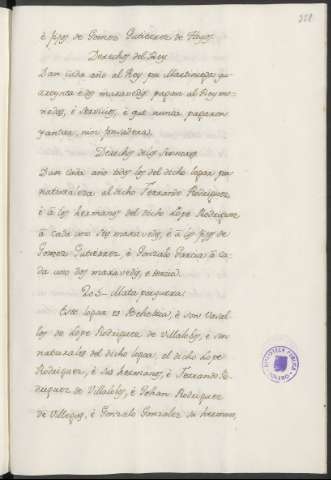 328
è fijos de Gomez Gutierrez de Hoyos.
Derechos del Rey
Dan cada año al Rey por Martiniega qu
arenta è dos maravedis pagan al Rey mo
nedas, è servicios, è que nunca pagaron
yantar, nin fonsadera.
Derechos delos Señores
Dan cada año todos los del dicho logar por
naturaleza al dicho Ferrando Rodriguez,
è à los hermanos del dicho Lope Rodriguez
à cada uno tres maravedis, è à los fijos de
Gomez Gutierrez, è Gonzalo Garcia à ca
da uno dos maravedis, è tercia.
203- Mata porquera.
Este logar es Behetria, è son Vasal
los de Lope Rodriguez de Villalobos, è son
naturales del dicho logar, el dicho Lope
Rodriguez, è sus hermanos, è Ferrando Ro
driguez de Villalobos, è Johan Rodriguez
de Villegas, è Gonzalo Gonzalez su hermano,
BIBLIOTECA PUBLICA
TOLEDO